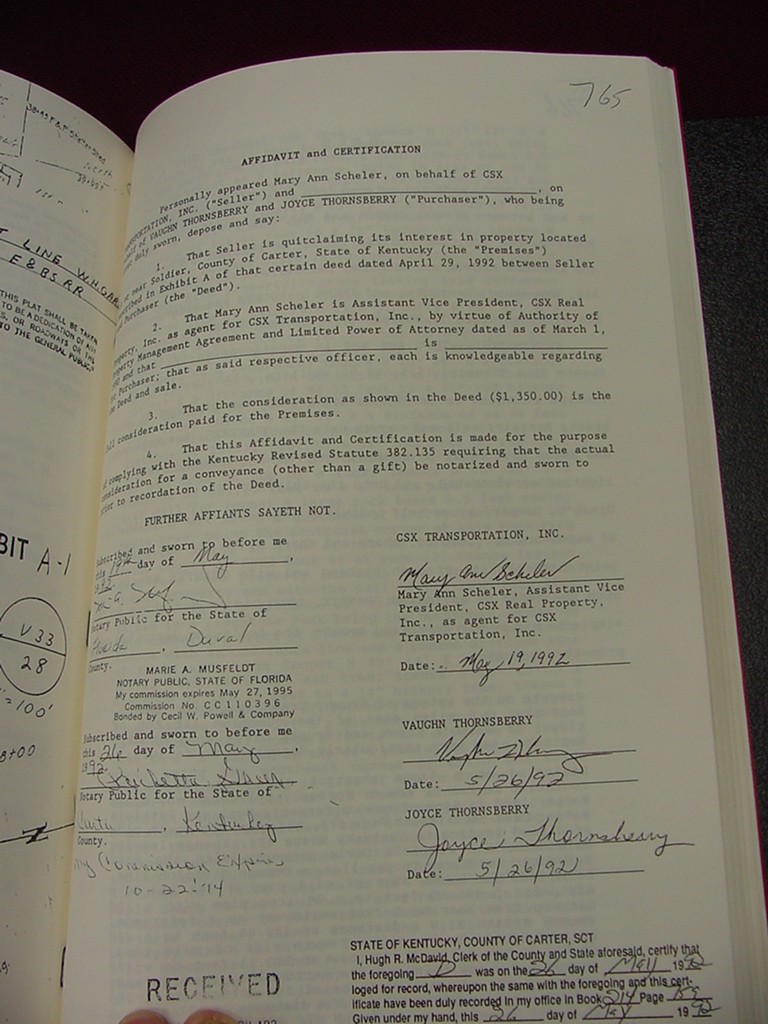 765
AFFIDAVIT and CERTIFICATION
Personally appeared Mary Ann Scheler, on behalf of CSX
INC. ("Seller") and , on
VAUGHN THORNSBERRY and JOYCE THORNSBERRY ("Purchaser"), who being
duly sworn, depose and say:
1. That Seller is quitclaiming its interest in property located
near Soldier, County of Carter, State of Kentucky (the "Premises")
in Exhibit A of that certain deed dated April 29, 1992 between Seller
Purchaser (the "Deed").
2. That Mary Ann Scheler is Assistant Vice President, CSX Real
Inc. as agent for CSX Transportation, Inc., by virtue of Authority of
Management Agreement and Limited Power of Attorney dated as of March 1,
and that is
Purchaser; that as said respective officer, each is knowledgeable regarding
Deed and sale.
3. That the consideration as shown in the Deed ($1,350.00) is the
consideration paid for the Premises.
4. That this Affidavit and Certification is made for the purpose
complying with the Kentucky Revised Statute 382.135 requiring that the actual
for a conveyance (other than a gift) be notarized and sworn to
to recordation of the Deed.
FURTHER AFFIANTS SAYETH NOT.
and sworn to before me
this 19th day of May,
1992
Public for the State of
, Duval
County.
MARIE A. MUSFELDT
NOTARY PUBLIC, STATE OF FLORIDA
My commission expires May 27, 1995
Commission No. CC 110396
Bonded by Cecil W. Powell & Company
Subscribed and sworn to before me
this 26 day of May,
1992
Notary Public for the State of
, Kentucky
County.
My Commission Expires
CSX TRANSPORTATION, INC.
Mary Ann Scheler
Mary Ann Scheler, Assistant Vice
President, CSX Real Property,
Inc., as agent for CSX
Transportation, Inc.
Date: May 19, 1992
VAUGHN THORNSBERRY
Date: 5/26/92
JOYCE THORNSBERRY
Joyce Thornsberry
Date: 5/26/92
RECEIVED
STATE OF KENTUCKY, COUNTY OF CARTER, SCT
I, Hugh R. McDavid, Clerk of the County and State aforesaid, certify that
the foregoing D was on the 26 day of May 19
loged for record, whereupon the same with the foregoing and this cert-
ificate have been duly recorded in my office in Book Page
Given under my hand, this 26 day of May 19
LINE
E & BS RR
THIS PLAT SHALL BE TAKEN
TO BE A DEDICATION OF ANY
OR ROADWAYS OR THE
TO THE GENERAL PUBLIC
BIT A-1
V 33
28
=100'